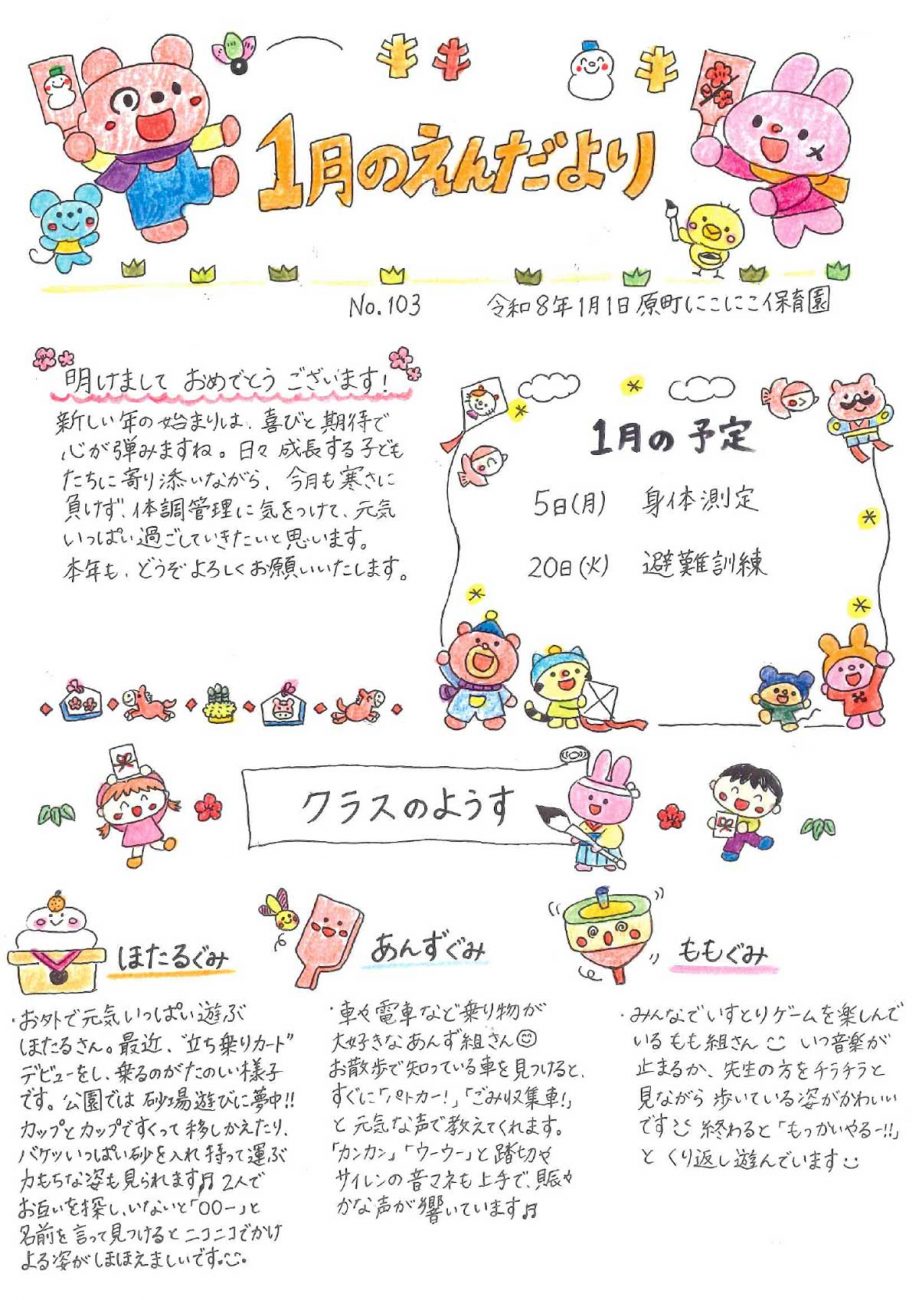 1月のえんだより
No.103 令和8年1月1日 原町にこにこ保育園
明けまして おめでとう ございます!
新しい年の始まりは、喜びと期待で
心が弾みますね。日々成長する子ども
たちに寄り添いながら、今月も寒さに
負けず、体調管理に気をつけて、元気
いっぱい過ごしていきたいと思います。
本年も、どうぞよろしくお願いいたします。
1月の予定
5日(月) 身体測定
20日(火) 避難訓練
クラスのようす
ほたるぐみ
・お外で元気いっぱい遊ぶ
ほたるさん。最近、"立ち乗りカート"
デビューをし、乗るのがたのしい様子
です。公園では砂場遊びに夢中!!
カップとカップですくって移しかえたり、
バケツいっぱい砂を入れ持って運ぶ
力もちな姿も見られます♬ 2人で
お互いを探し、いないと「○○ー」と
名前を言って見つけるとニコニコでかけ
よる姿がほほえましいです。
あんずぐみ
・車や電車など乗り物が
大好きなあんず組さん
お散歩で知っている車を見つけると、
すぐに「パトカー!」「ごみ収集車!」
と元気な声で教えてくれます。
「カンカン」「ウーウー」と踏切や
サイレンの音マネも上手で、賑や
かな声が響いています♬
ももぐみ
・みんなでいすとりゲームを楽しんで
いるもも組さん いつ音楽が
止まるか、先生の方をチラチラと
見ながら歩いている姿がかわいい
です 終わると「もっかいやるー!!」
とくり返し遊んでいます